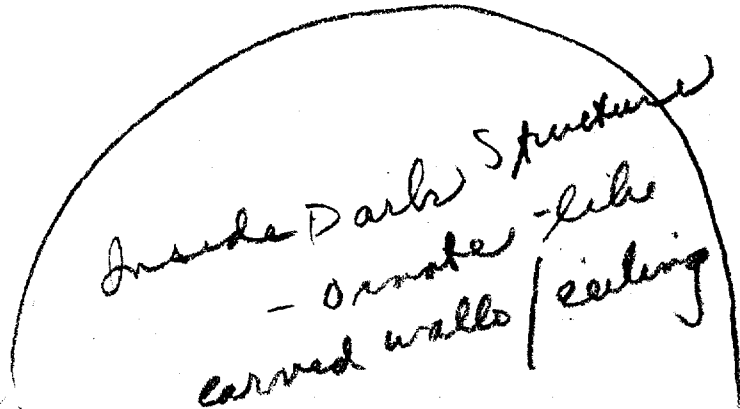 Inside Dark Structure
- Ornate - like
carved walls / ceiling